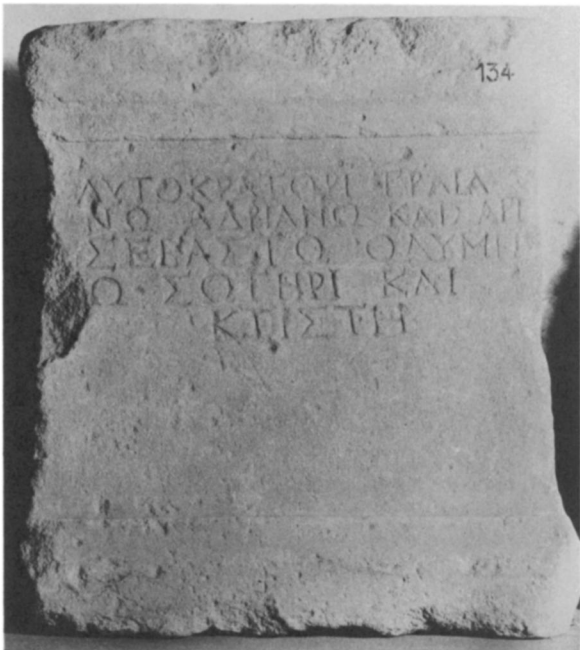 134
ΑΥΤΟΚΡΑΤΟΡΙ ΤΡΑΙΑ
ΝΩ ΑΔΡΙΑΝΩ ΚΑΙΣΑΡΙ
ΣΕΒΑΣΤΩ ΟΛΥΜΠΙ
Ω ΣΩΤΗΡΙ ΚΑΙ
ΚΤΙΣΤΗ